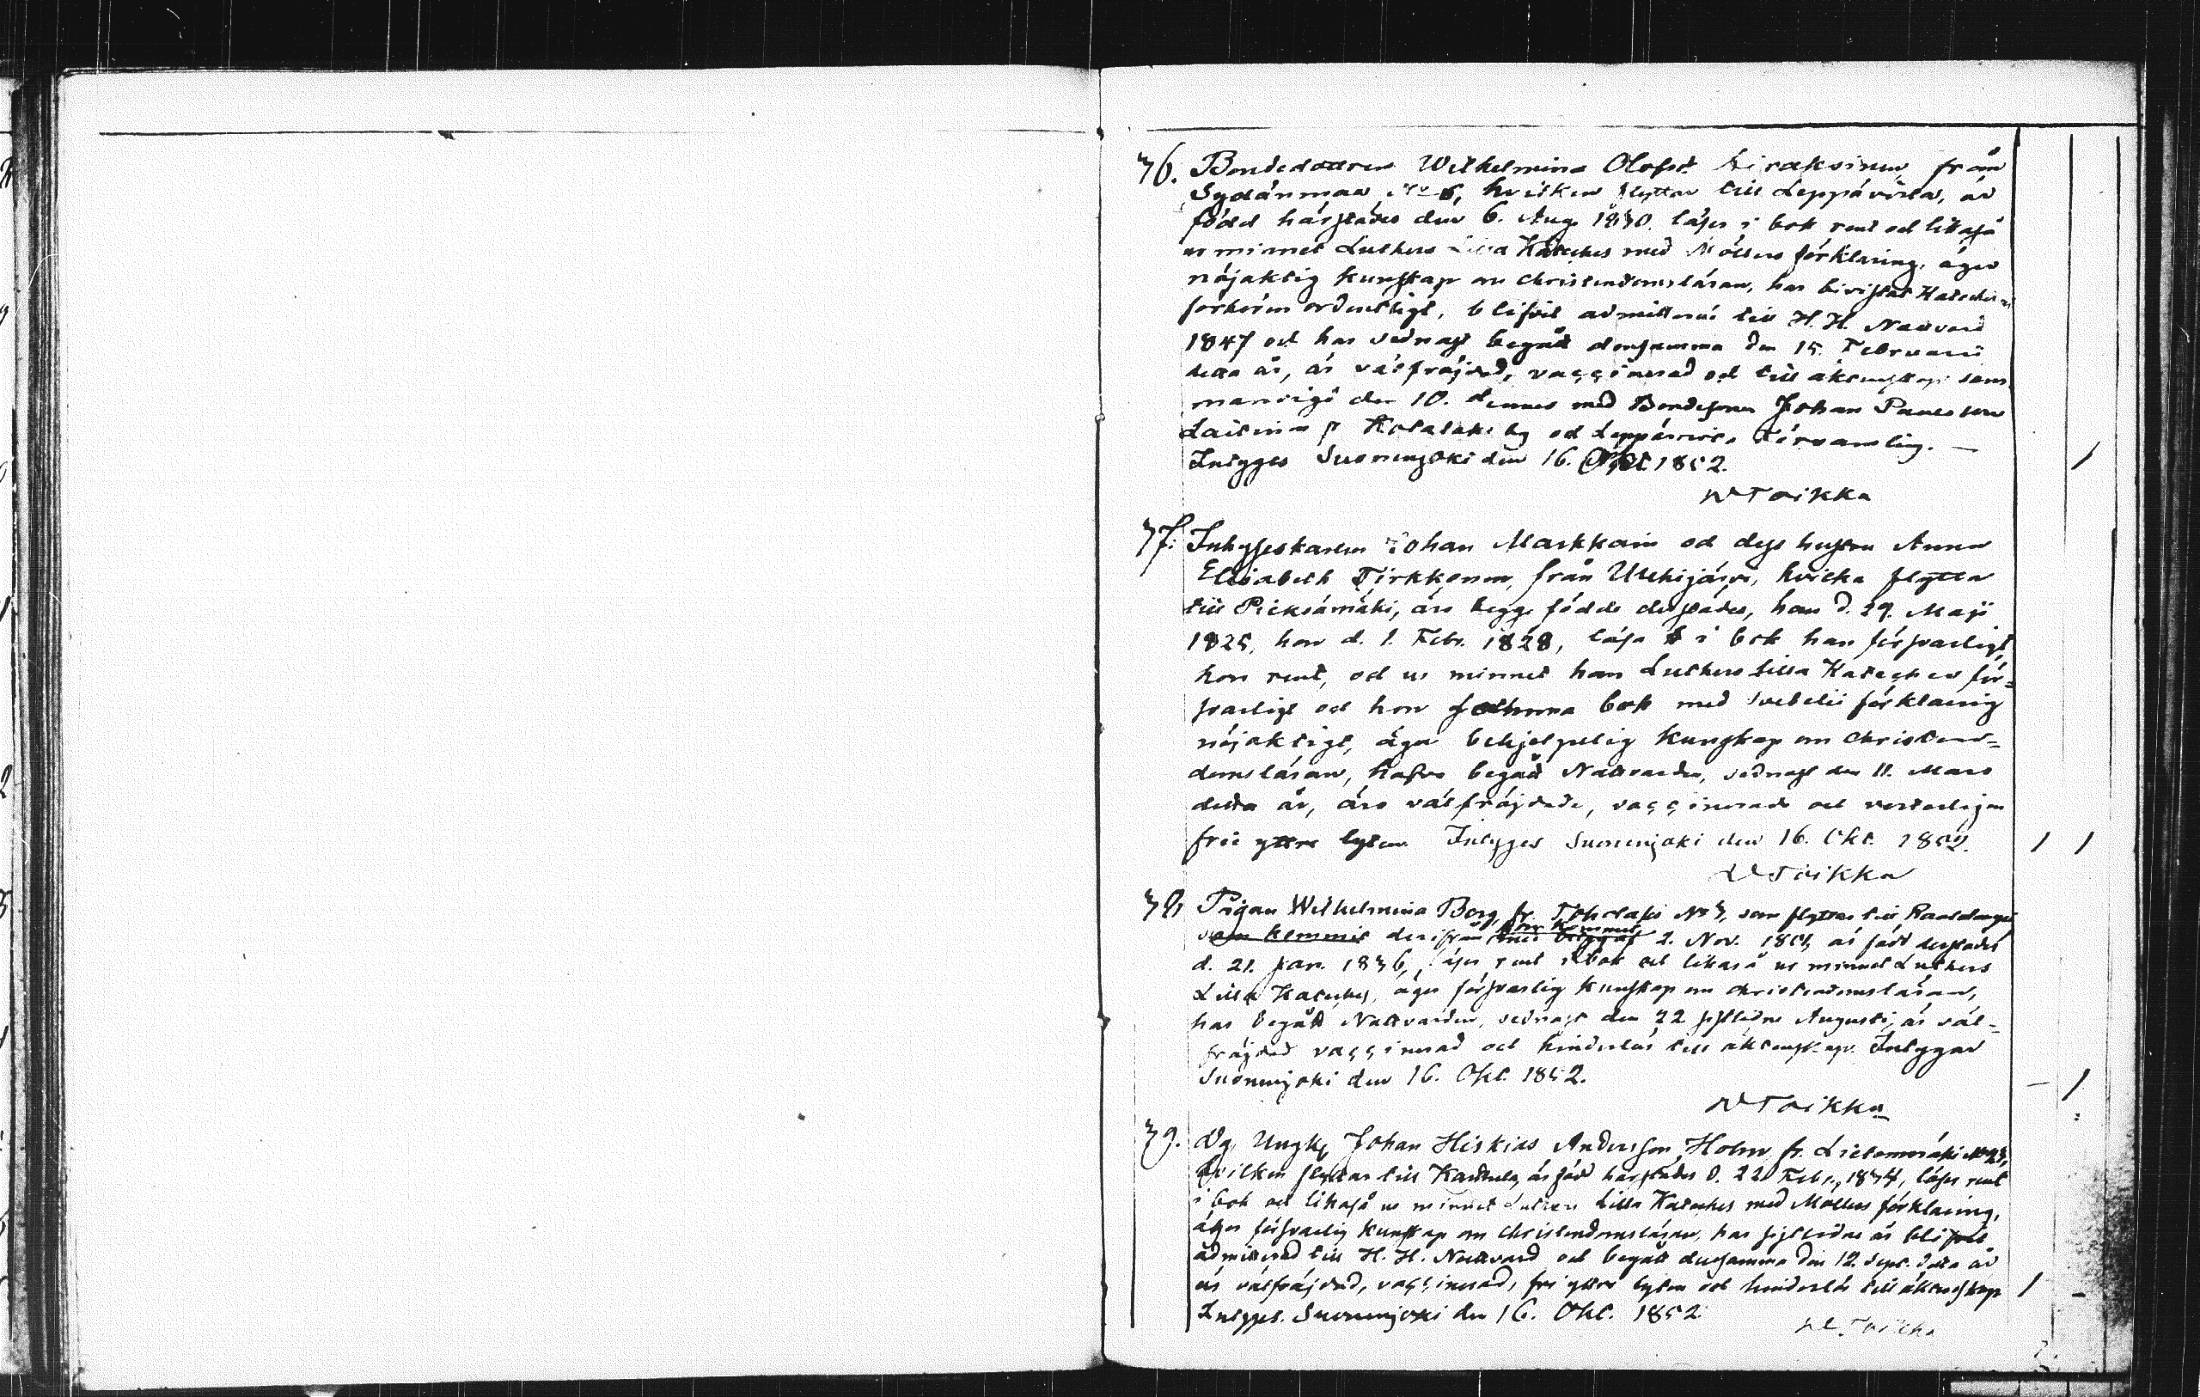 36. Bondedottren Wilhelmina Olofsd. Kiraksinen från
Sydänmaa No 6, hvilken flyttar till Leppävirta, är
född härstädes den 6. Aug. 1830. läser i bok rent och likaså
ur minnet Luthers Lilla Kateches med Möllers förklaring, äger
nöjaktig kunskap om christendomsläran, har bivistat Katechis-
förhören ordentligt, blifvit admitterad till H. H. Nattvard
1847 och har sednast begått densamma den 15. Februarii
detta år, är välfräjdad, vaccinerad och till äktenskap
den 10. dennes med Bondesonen Johan Paulsson
Laitinen fr by och Leppävirta församling. —
Intygges Suonenjoki den 16. Okt 1852.
W Toikka
37. Inhyseskarlen Johan Markkain och dess hustru Anna
Elisabeth Tirkkonen, från Uthijärvi, hvilka flytta
till Pieksämäki, äro begge födde derstädes, han d. 29. Maji
1825, hon d. 1. Febr. 1828, läsa i bok han försvarligt,
hon rent, och ur minnet han Luthers Lilla Kateches för-
svarligt och hon samma bok med Svebelii förklaring
nöjaktigt, äga behjelpelig kunskap om christen-
domsläran, hafva begått Nattvarden, sednast den 11. Mars
detta år, äro välfräjdade, vaccinerade och
fria yttre lyten Intygges Suonenjoki den 16. Okt. 1852.
W Toikka
38. Pigan Wilhelmina Borg, fr. No 3, som flyttar till
som kommit derifrån 2. Nov. är född derstädes
d. 21. Jan. 1836, läser rent i bok och likaså ur minnet Luthers
Lilla Kateches, äger försvarlig kunskap om christendomsläran,
har begått Nattvarden, sednast den 22 sistlidne Augusti, är väl-
fräjdad vaccinerad och hinderlös till äktenskap. Intygar
Suonenjoki den 16. Okt. 1852.
W Toikka
39. Ungk. Johan Hiskias Andersson Holm fr. Lietemäki No 23,
hvilken flyttar till är född härstädes d. 22 Febr. 1834, läser rent
i bok och likaså ur minnet Luthers Lilla Kateches med Möllers förklaring,
äger försvarlig kunskap om christendomsläran, har sistledne år blifvit
admitterad till H. H. Nattvard och begått densamma den 12. Sept. detta år
är välfräjdad, vaccinerad, fri yttre lyten och hinderlös till äktenskap
Intygges. Suonenjoki den 16. Okt. 1852
W Toikka